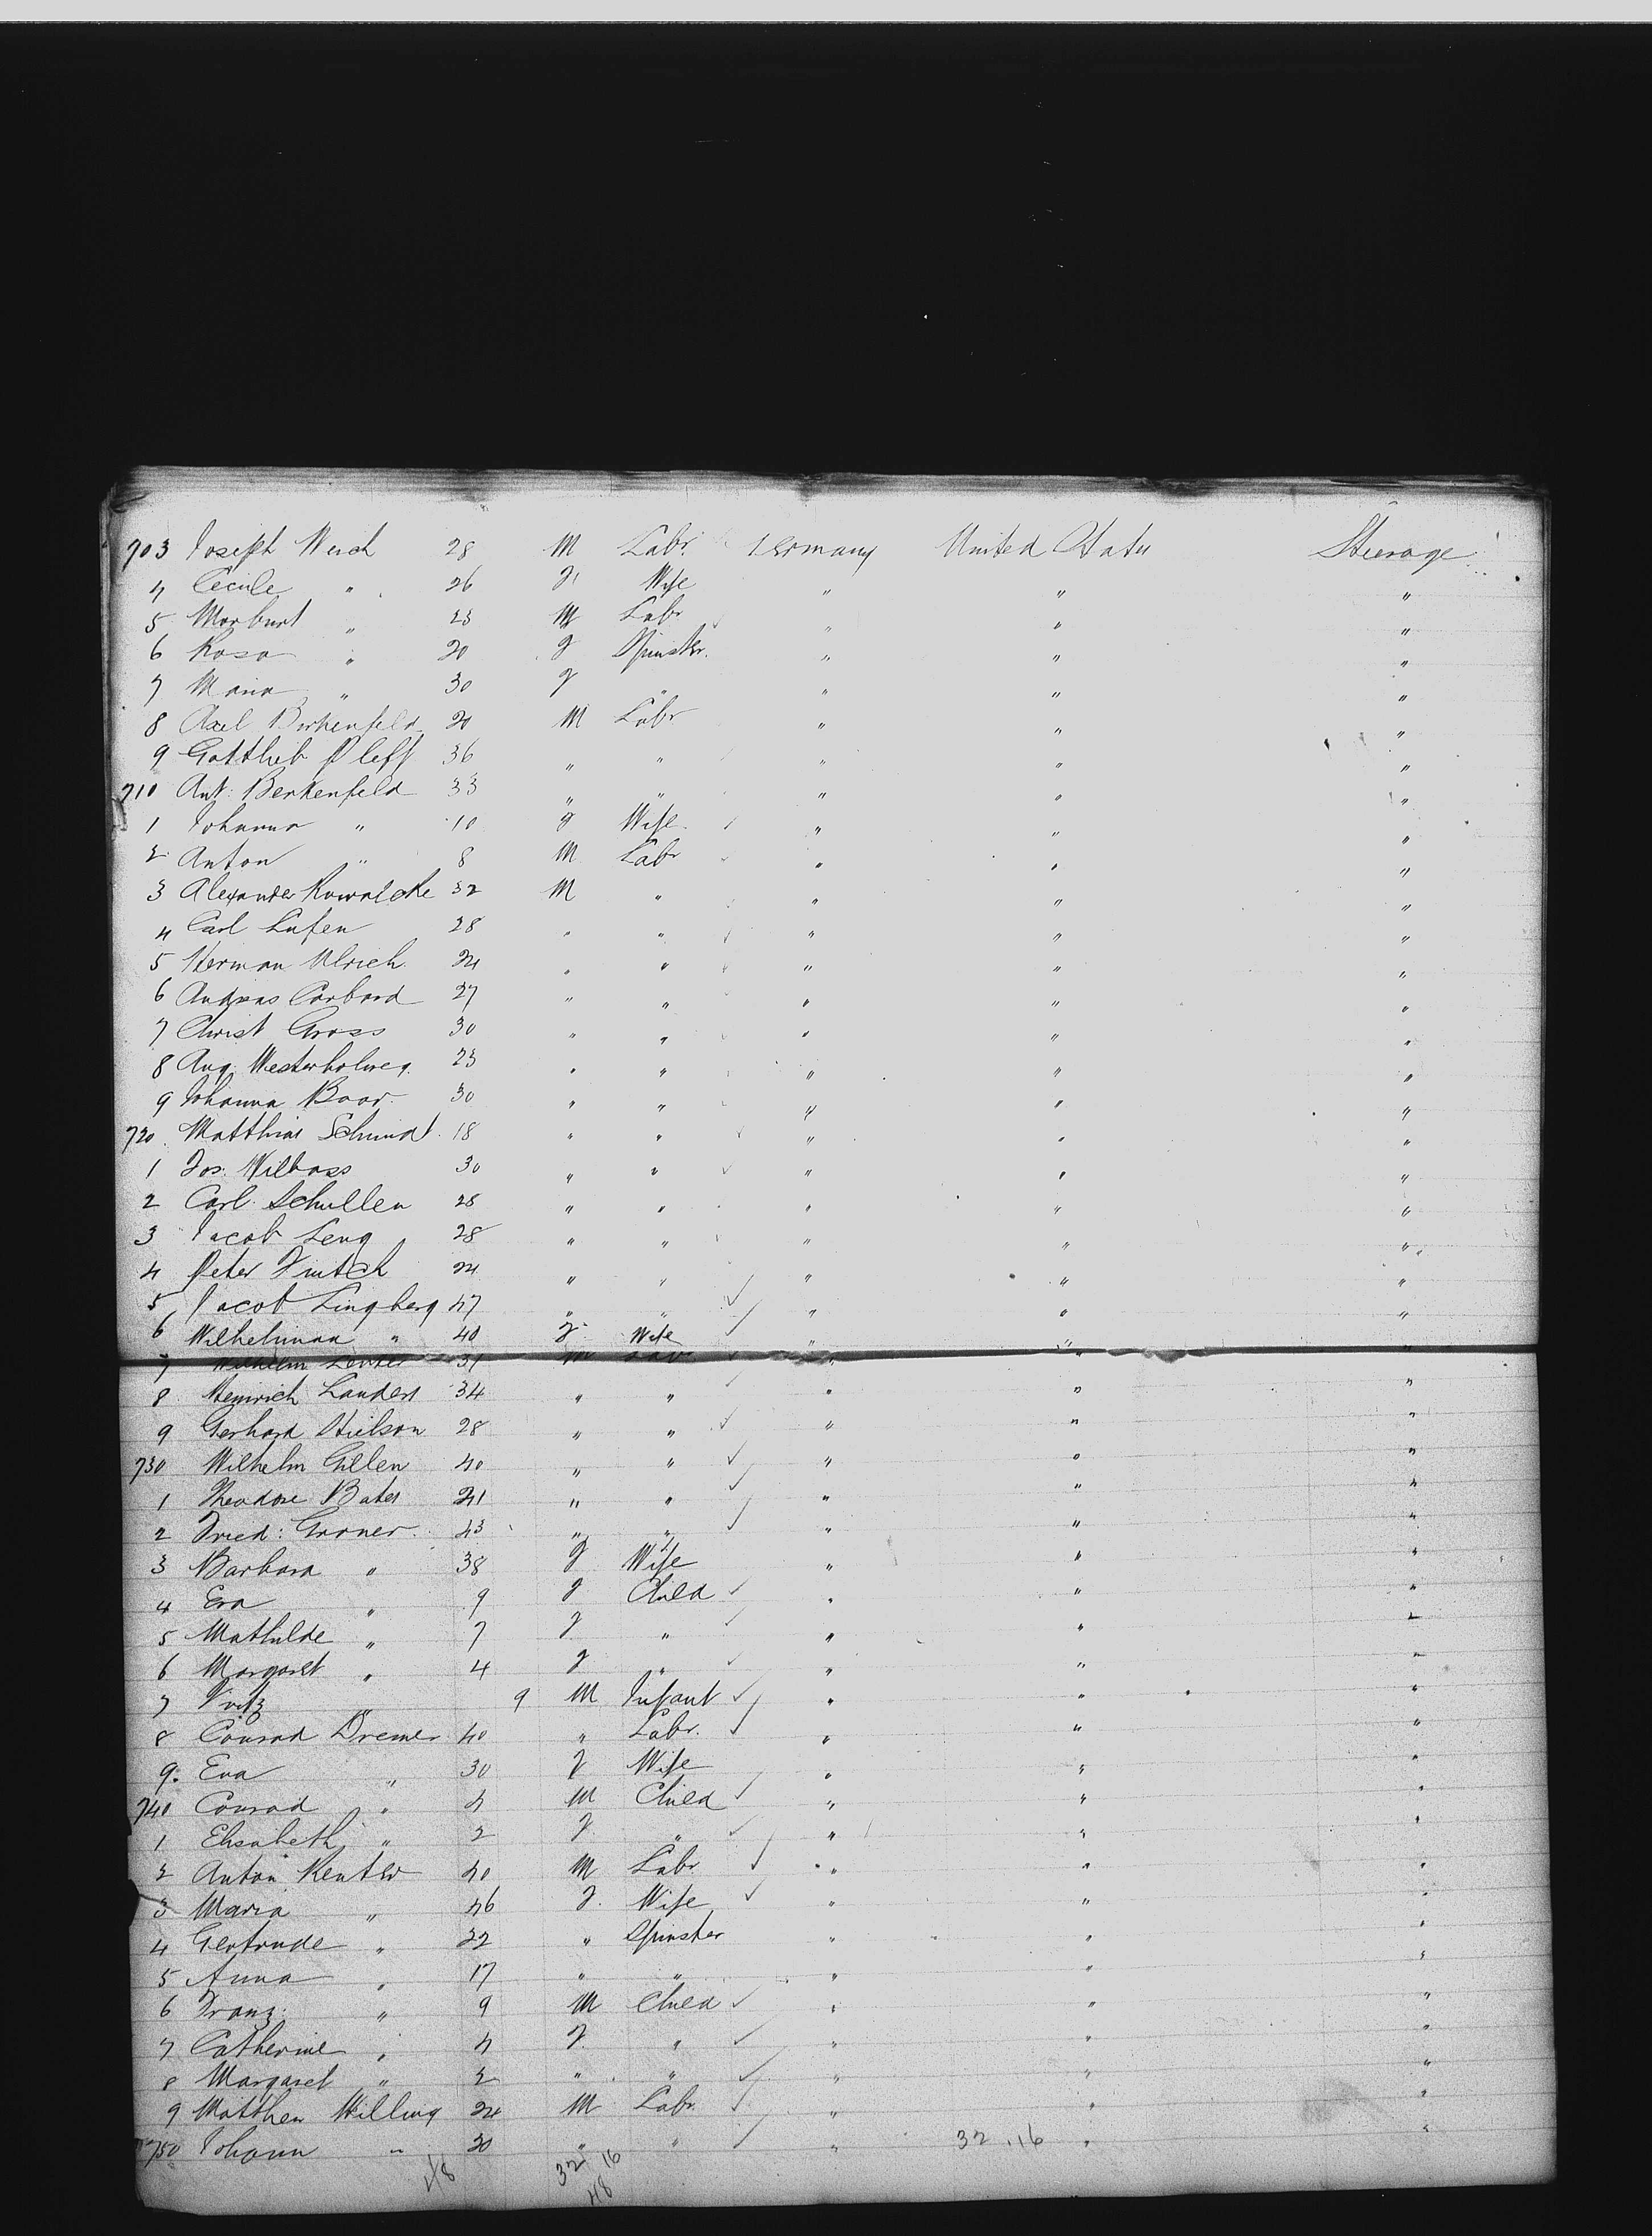 703 Joseph Wersch 28 M Labr Germany United States Steerage
4 Cecile " 26 F Wife " " "
5 " 23 M Labr " " "
6 Rosa " 20 F Spinster " " "
7 Maria " 30 F " " " "
8 Axel Birkenfeld 20 M Labr " " "
9 Gottlieb Pleff 36 " " " " "
710 Ant: Berkenfeld 33 " " " " "
1 Johanna " 10 F Wife " " "
2 Anton " 8 M Labr " " "
3 Alexander Kowalcke 32 M " " " "
4 Carl Lufen 28 " " " " "
5 Herman Ulrich 24 " " " " "
6 Andreas Carbard 27 " " " " "
7 Christ Gross 30 " " " " "
8 Aug. Westerholweg 23 " " " " "
9 Johanna Boor 30 " " " " "
720 Matthias Schmidt 18 " " " " "
1 Jos. Wilbass 30 " " " " "
2 Carl Schullen 28 " " " " "
3 Jacob Leng 28 " " " " "
4 Peter 24 " " " " "
5 Jacob Lingberg 47 " " " " "
6 Wilhelmina " 40 F Wife " " "
7 Wilhelm 31 M Labr " " "
8 Heinrich Landers 34 " " " " "
9 Gerhard 28 " " " " "
730 Wilhelm Gillen 40 " " " " "
1 Theodore Bates 21 " " " " "
2 Fried: Groner 43 " " " " "
3 Barbara " 38 F Wife " " "
4 Eva " 9 F Child " " "
5 Mathilde " 7 F " " " "
6 Margaret " 4 F " " " "
7 Fritz " 9 M Infant " " "
8 Conrad Dremer 40 " Labr. " " "
9. Eva " 30 F Wife " " "
740 Conrad " 4 M Child " " "
1 Elisabeth " 2 F " " " "
2 Anton Kenter 40 M Labr " " "
3 Maria " 46 F. Wife " " "
4 Gertrude " 22 " Spinster " " "
5 Anna " 17 " " " " "
6 Franz " 9 M Child " " "
7 Catherine " 4 F. " " " "
8 Margaret " 2 " " " " "
9 Matthew Willing 24 M Labr " " "
750 Johann " 20 " " " 32.16 " "
48 32 16
48